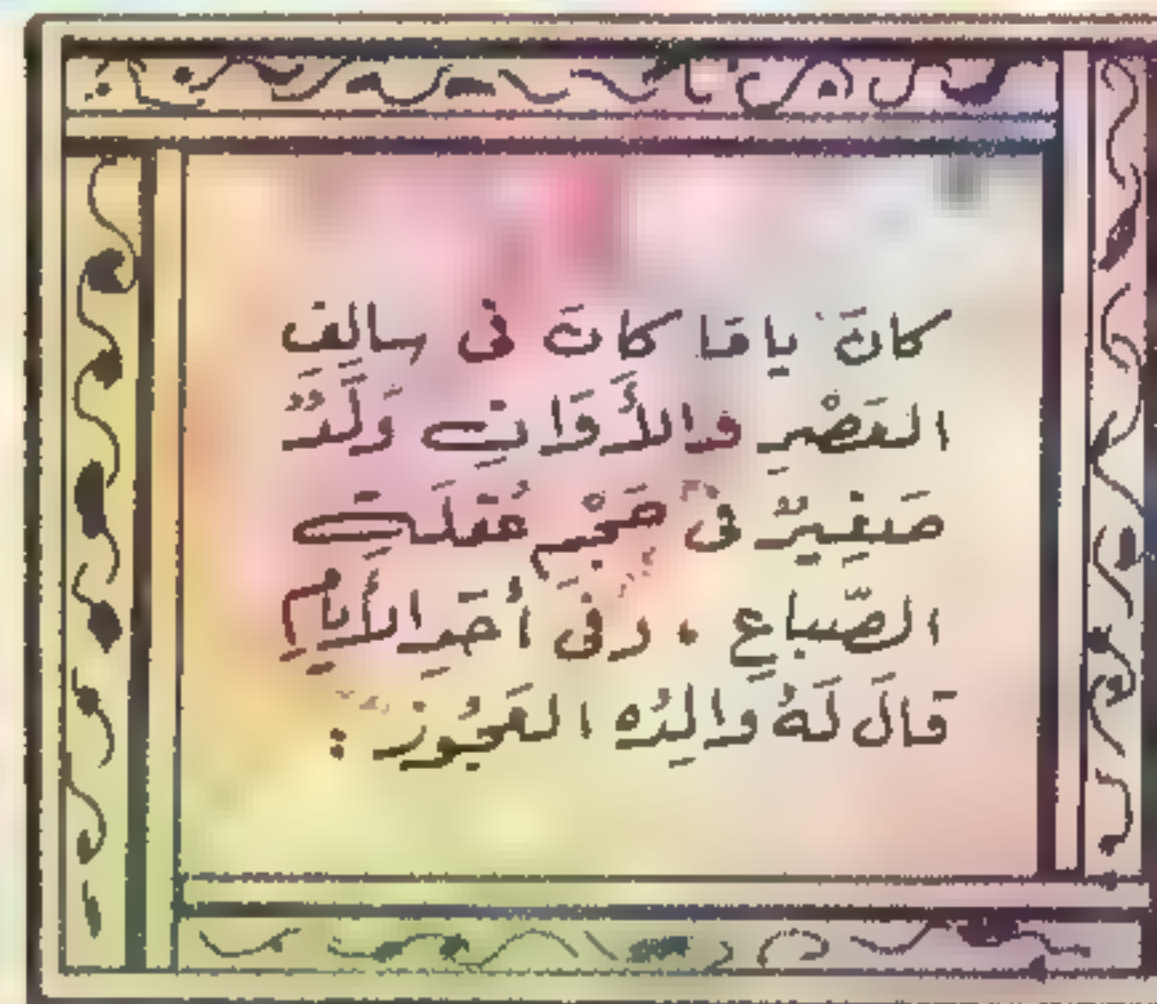 كانَ ياما كانَ فى سالِفِ
العَصْرِ والأَوَانِ وَلَدٌ
صَغِيرٌ فى حَجْمِ عُقلَةِ
الصّباعِ ، وفى أحَدِ الأَيامِ
قالَ لَهُ والِدُه العَجُوزُ :